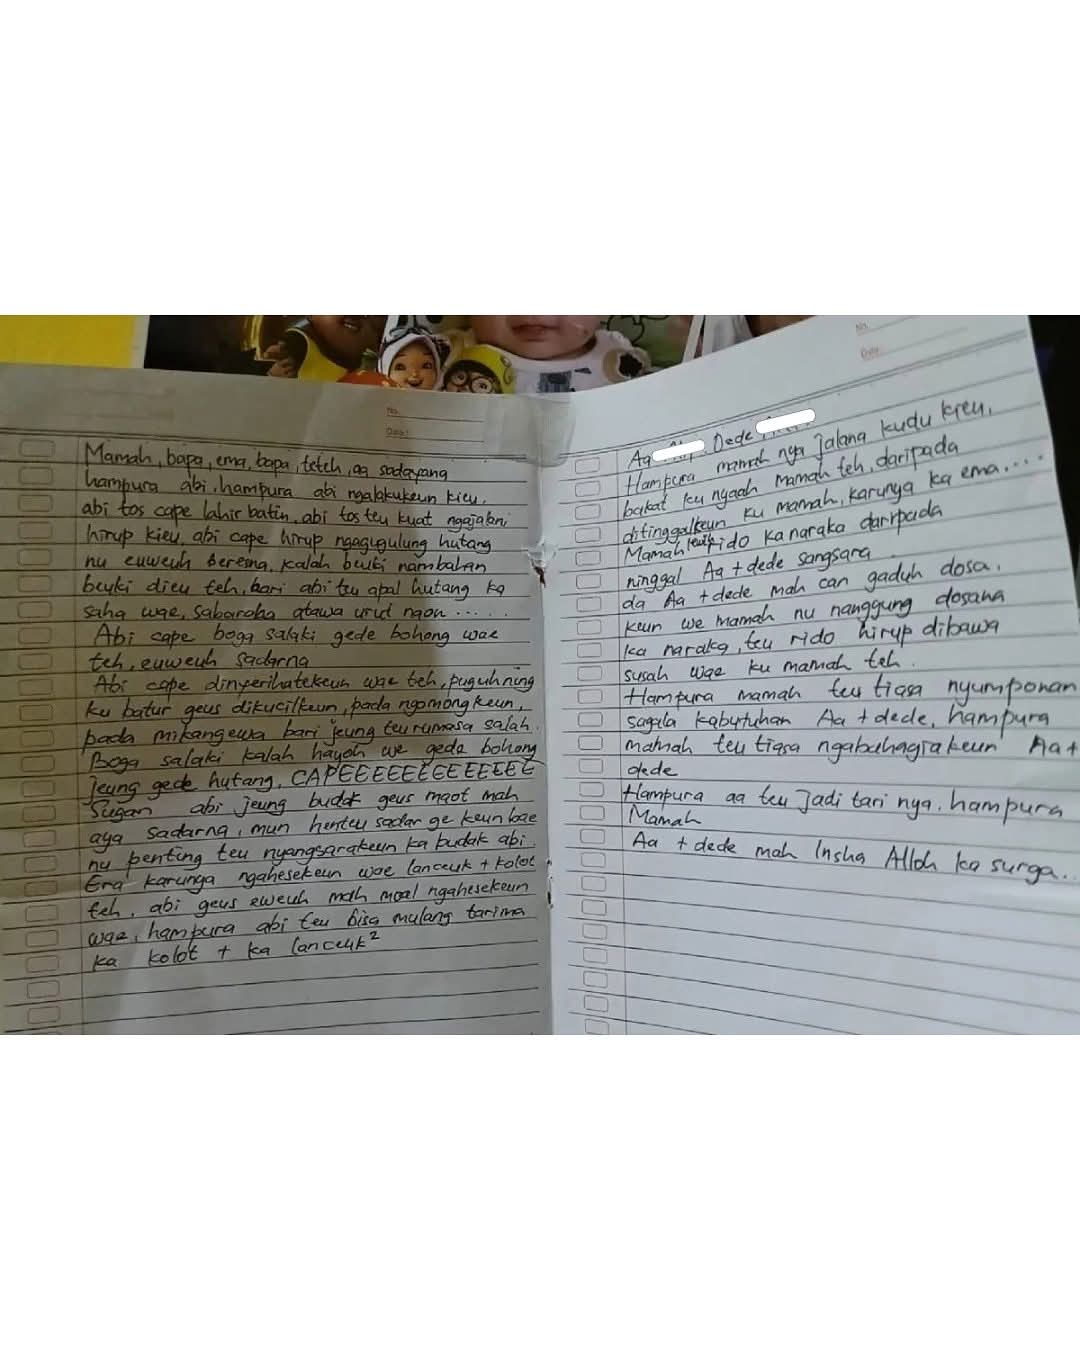 No.
Date:
Mamah, bapa, ema, bapa, teteh, aa sadayana
hampura abi, hampura abi ngalakukeun kieu.
abi tos cape lahir batin, abi tos teu kuat ngajalani
hirup kieu, abi cape hirup ngagugulung hutang
nu euweuh beresna, kalah beuki nambahan
beuki dieu teh, bari abi teu apal hutang ka
saha wae, sabaraha atawa urut naon .....
Abi cape boga salaki gede bohong wae
teh, euweuh sadarna
Abi cape dinyerihatekeun wae teh, puguh ning
ku batur geus dikucilkeun, pada ngomongkeun,
pada mikangewa bari jeung teu rumasa salah.
Boga salaki kalah hayoh we gede bohong
jeung gede hutang, CAPEEEEEEEEEEEEEE
Sugan abi jeung budak geus maot mah
aya sadarna, mun henteu sadar ge keun bae
nu penting teu nyangsarakeun ka budak abi.
Era karunya ngahesekeun wae lanceuk + kolot
teh, abi geus eweuh mah moal ngahesekeun
wae, hampura abi teu bisa mulang tarima
ka kolot + ka lanceuk²
No.
Date:
Aa Dede
Hampura mamah nya jalana kudu kieu,
bakat ku nyaah mamah teh, daripada
ditinggalkeun ku mamah, karunya ka ema....
Mamah leuih rido ka naraka daripada
ninggal Aa + dede sangsara
da Aa + dede mah can gaduh dosa,
keun we mamah nu nanggung dosana
ka naraka, teu rido hirup dibawa
susah wae ku mamah teh.
Hampura mamah teu tiasa nyumponan
sagala kabutuhan Aa + dede, hampura
mamah teu tiasa ngabahagiakeun Aa +
dede
Hampura aa teu jadi tari nya. hampura
Mamah
Aa + dede mah Insha Alloh ka surga..